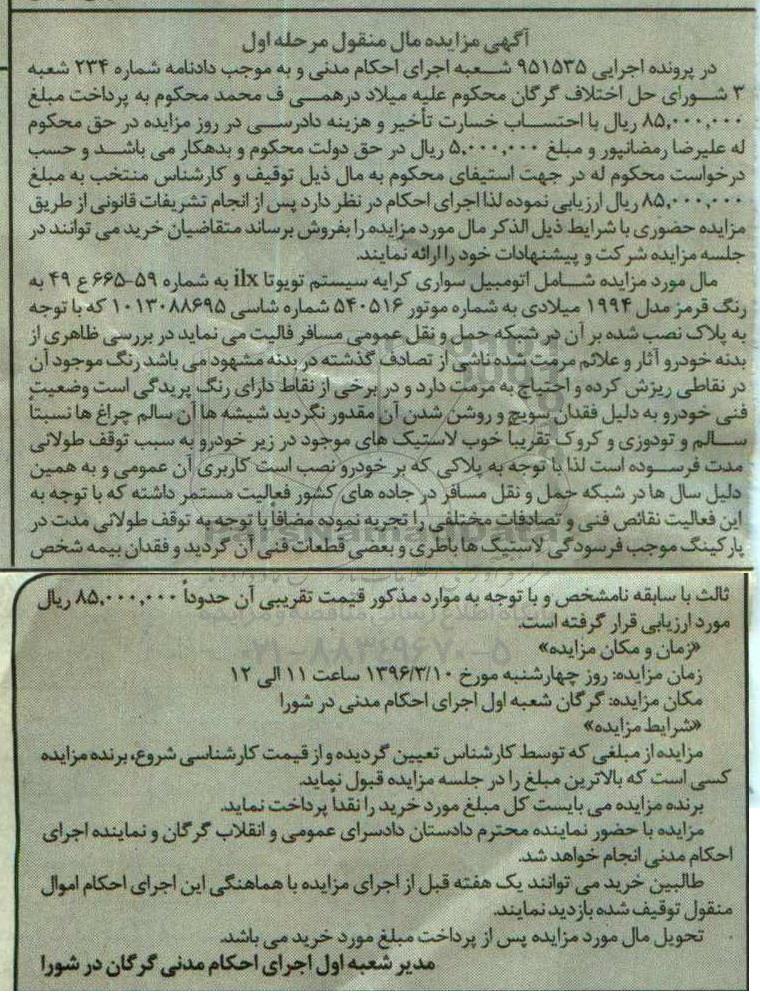 آگهی مزایده مال منقول مرحله اول
در پرونده اجرایی ۹۵۱۵۳۵ شعبه اجرای احکام مدنی و به موجب دادنامه شماره ۲۳۴ شعبه
۳ شورای حل اختلاف گرگان محکوم علیه میلاد درهمی ف محمد محکوم به پرداخت مبلغ
۸۵,۰۰۰,۰۰۰ ریال با احتساب خسارت تأخیر و هزینه دادرسی در روز مزایده در حق محکوم
له علیرضا رمضانپور و مبلغ ۵,۰۰۰,۰۰۰ ریال در حق دولت محکوم و بدهکار می باشد و حسب
درخواست محکوم له در جهت استیفای محکوم به مال ذیل توقیف و کارشناس منتخب به مبلغ
۸۵,۰۰۰,۰۰۰ ریال ارزیابی نموده لذا اجرای احکام در نظر دارد پس از انجام تشریفات قانونی از طریق
مزایده حضوری با شرایط ذیل الذکر مال مورد مزایده را بفروش برساند متقاضیان خرید می توانند در
جلسه مزایده شرکت و پیشنهادات خود را ارائه نمایند.
مال مورد مزایده شامل اتومبیل سواری کرایه سیستم تویوتا ilx به شماره ۵۹-۶۶۵ ع ۴۹ به
رنگ قرمز مدل ۱۹۹۴ میلادی به شماره موتور ۵۴۰۵۱۶ شماره شاسی ۱۰۱۳۰۸۸۶۹۵ که با توجه
به پلاک نصب شده بر آن در شبکه حمل و نقل عمومی مسافر فالیت می نماید در بررسی ظاهری از
بدنه خودرو آثار و علائم مرمت شده ناشی از تصادف گذشته در بدنه مشهود می باشد رنگ موجود آن
در نقاطی ریزش کرده و احتیاج به مرمت دارد و در برخی از نقاط دارای رنگ پریدگی است وضعیت
فنی خودرو به دلیل فقدان سویچ و روشن شدن آن مقدور نگردید شیشه ها آن سالم چراغ ها نسبتاً
سالم و تودوزی و کروک تقریباً خوب لاستیک های موجود در زیر خودرو به سبب توقف طولانی
مدت فرسوده است لذا با توجه به پلاکی که بر خودرو نصب است کاربری آن عمومی و به همین
دلیل سال ها در شبکه حمل و نقل مسافر در جاده های کشور فعالیت مستمر داشته که با توجه به
این فعالیت نقائص فنی و تصادفات مختلفی را تجربه نموده مضافاً با توجه به توقف طولانی مدت در
پارکینگ موجب فرسودگی لاستیک ها باطری و بعضی قطعات فنی آن گردید و فقدان بیمه شخص
ثالث با سابقه نامشخص و با توجه به موارد مذکور قیمت تقریبی آن حدوداً ۸۵,۰۰۰,۰۰۰ ریال
مورد ارزیابی قرار گرفته است.
«زمان و مکان مزایده»
زمان مزایده: روز چهارشنبه مورخ ۱۳۹۶/۳/۱۰ ساعت ۱۱ الی ۱۲
مکان مزایده: گرگان شعبه اول اجرای احکام مدنی در شورا
«شرایط مزایده»
مزایده از مبلغی که توسط کارشناس تعیین گردیده و از قیمت کارشناسی شروع، برنده مزایده
کسی است که بالاترین مبلغ را در جلسه مزایده قبول نماید.
برنده مزایده می بایست کل مبلغ مورد خرید را نقداً پرداخت نماید.
مزایده با حضور نماینده محترم دادستان دادسرای عمومی و انقلاب گرگان و نماینده اجرای
احکام مدنی انجام خواهد شد.
طالبین خرید می توانند یک هفته قبل از اجرای مزایده با هماهنگی این اجرای احکام اموال
منقول توقیف شده بازدید نمایند.
تحویل مال مورد مزایده پس از پرداخت مبلغ مورد خرید می باشد.
مدیر شعبه اول اجرای احکام مدنی گرگان در شورا
۰۲۱-۸۸۳۴۹۶۷۰-۵